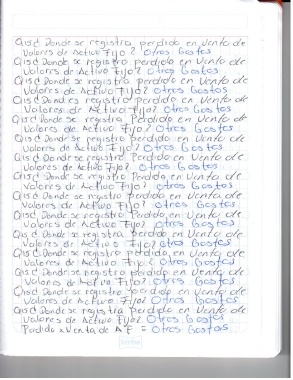 Qis¿ Donde se registra perdida en Venta de
Valores de Activo Fijo? Otros Gastos
Qis¿ Donde se registra perdida en Venta de
Valores de Activo Fijo? Otros Gastos
Qis¿ Donde se registra perdida en Venta de
Valores de Activo Fijo? Otros Gastos
Qis¿ Donde se registra perdida en Venta de
Valores de Activo Fijo? Otros Gastos
Qis¿ Donde se registra Perdida en Venta de
Valores de Activo Fijo? Otros Gastos
Qis¿ Donde se registra perdida en Venta de
Valores de Activo Fijo? Otros Gastos
Qis¿ Donde se registra Perdida en Venta de
Valores de Activo Fijo? Otros Gastos
Qis¿ Donde se registra Perdida en Venta de
Valores de Activo Fijo? Otros Gastos
Qis¿ Donde se registra perdida en Venta de
Valores de Activo Fijo? Otros Gastos
Qis¿ Donde se registra Perdida en Venta de
Valores de Activo Fijo? Otros Gastos
Qis¿ Donde se registra perdida en Venta de
Valores de Activo Fijo? Otros Gastos
Qis¿ Donde se registra perdida en Venta de
Valores de Activo Fijo? Otros Gastos
Qis¿ Donde se registra perdida en Venta de
Valores de Activo Fijo? Otros Gastos
Qis¿ Donde se registra perdida en Venta de
Valores de Activo Fijo? Otros Gastos
Qis¿ Donde se registra Perdida en Venta de
Valores de Activo Fijo? Otros Gastos
Perdida x Venta de A F = Otros Gastos
Scribe